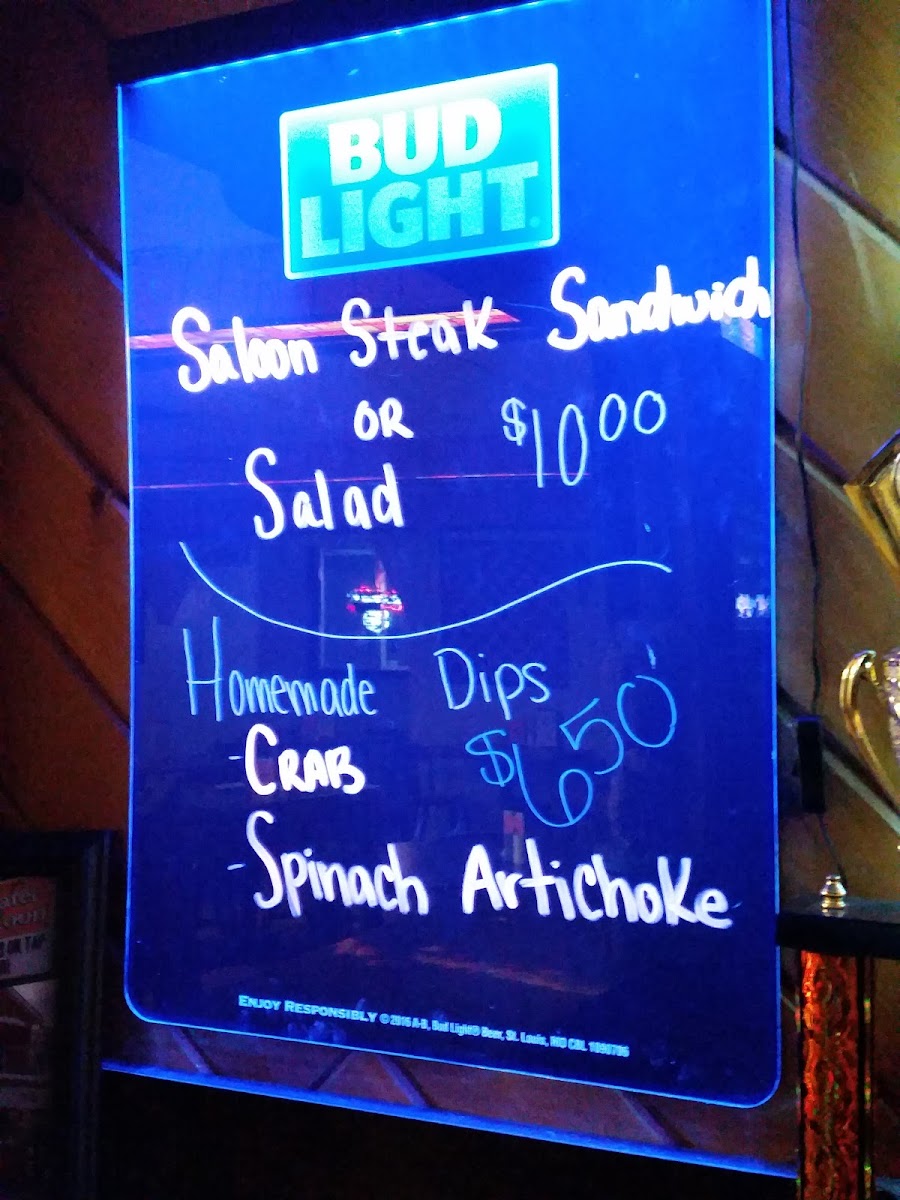 BUD
LIGHT
Saloon Steak Sandwich
OR $10.00
Salad
Homemade Dips
-CRAB $6.50
-Spinach Artichoke
ENJOY RESPONSIBLY © 2016 A-B, Bud Light® Beer, St. Louis, MO CBL